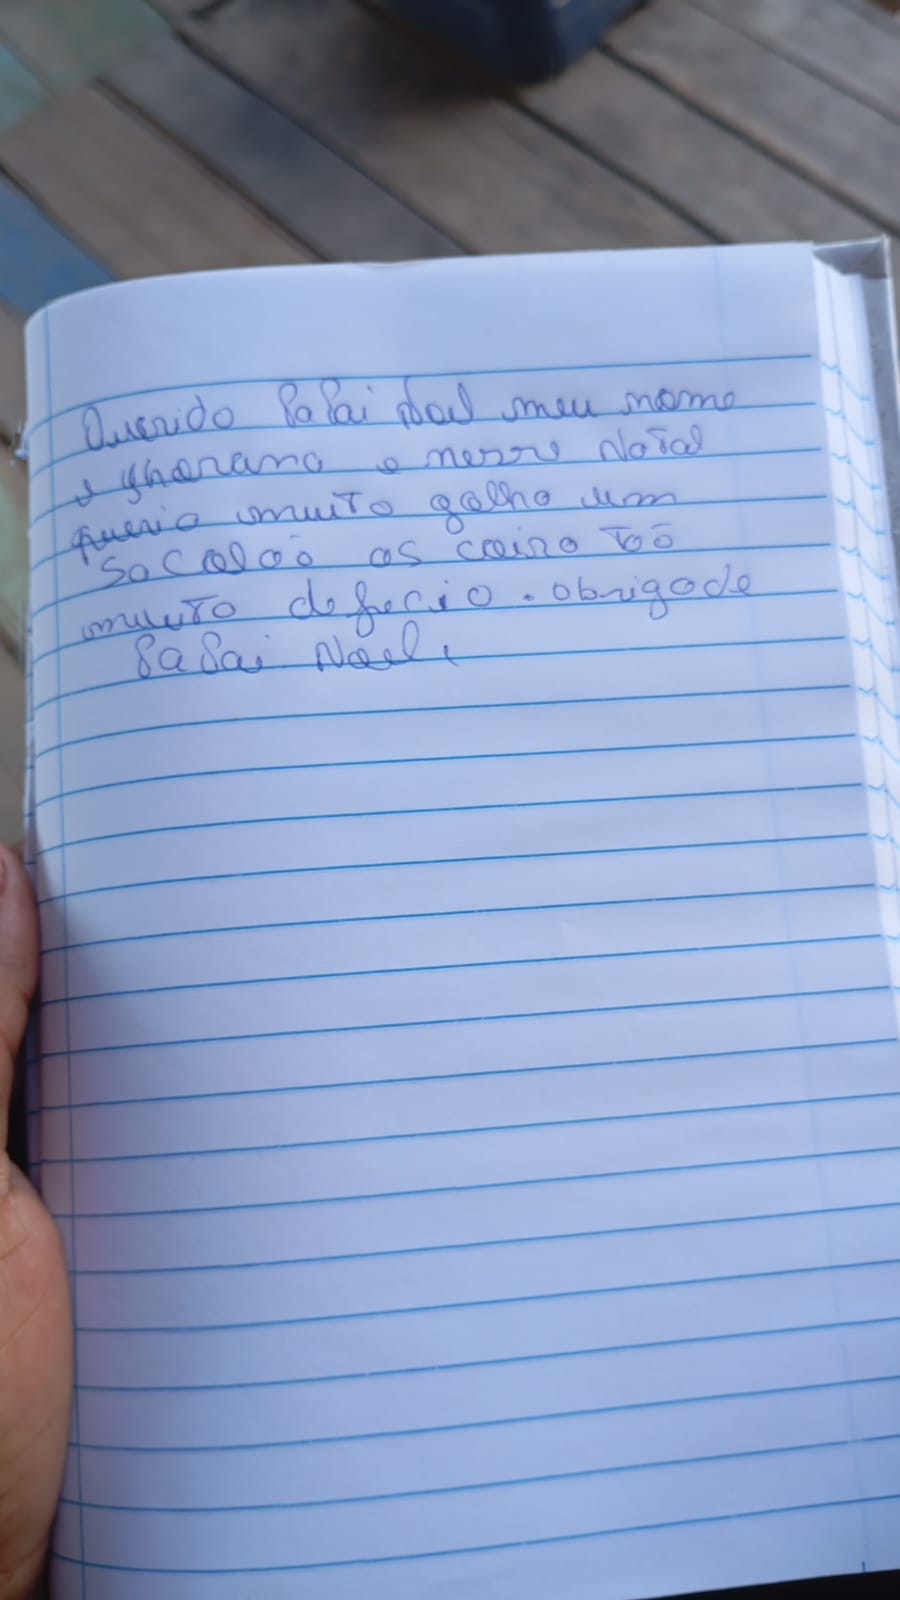 Querido PaPai Noel meu nome
e yhorana e nesse Natal
querio muito galho um
Sacolão as coiso tão
muito deficio. obrigade
PaPai Noel.